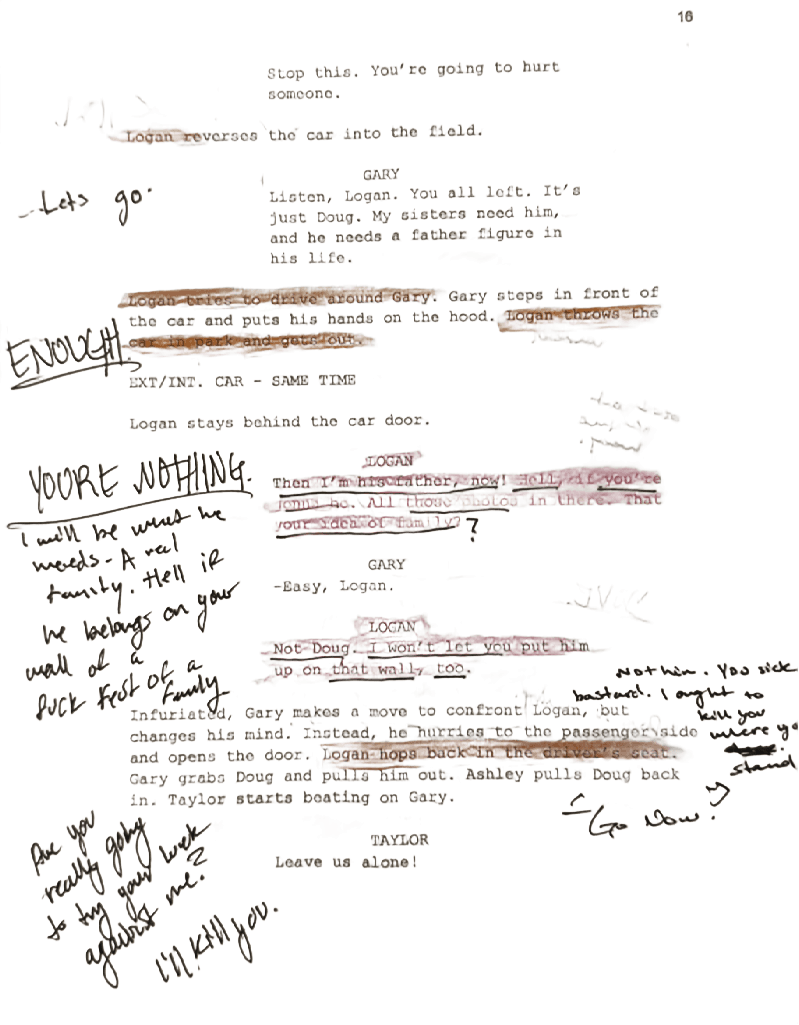 16
Stop this. You're going to hurt
someone.
Logan reverses the car into the field.
GARY
Lets go.
Listen, Logan. You all left. It's
just Doug. My sisters need him,
and he needs a father figure in
his life.
Logan tries to drive around Gary. Gary steps in front of
the car and puts his hands on the hood. Logan throws the
car in park and gets out.
ENOUGH.
EXT/INT. CAR - SAME TIME
Logan stays behind the car door.
LOGAN
Then I'm his father, now! Hell, if you're
gonna be. All those photos in there. That
your idea of family? ?
YOURE NOTHING.
I will be what he
needs - A real
family. Hell if
he belongs on your
wall of a
fuck fest of a
family
GARY
-Easy, Logan.
LOGAN
Not Doug. I won't let you put him
up on that wall, too.
Nothin. You sick
bastard. I ought to
kill you
where yo
stand
Infuriated, Gary makes a move to confront Logan, but
changes his mind. Instead, he hurries to the passenger side
and opens the door. Logan hops back in the driver's seat.
Gary grabs Doug and pulls him out. Ashley pulls Doug back
in. Taylor starts beating on Gary.
Go Now!
TAYLOR
Leave us alone!
Are you
really going
to try your luck
against me?
I'll kill you.